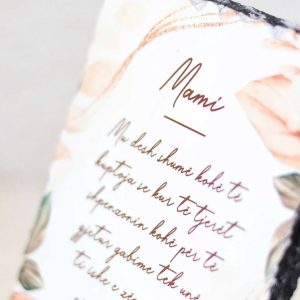 Mami
Mu desh shumë kohë të
kuptoja se kur të tjerët
shpenzonin kohë për të
gjetur gabime tek unë
ti ishe e